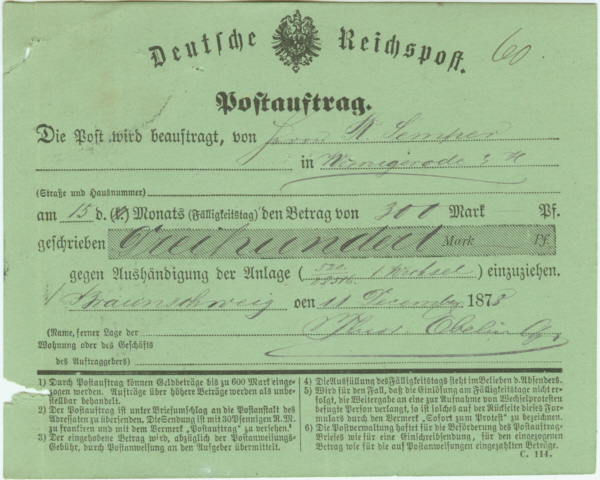 Deutsche Reichspost.
60
Postauftrag.
Die Post wird beauftragt, von Herrn Semper
in Wernigerode a H
(Straße und Hausnummer)
am 15 d. Monats (Fälligkeitstag) den Betrag von 300 Mark Pf.
geschrieben Dreihundert Mark Pf.
gegen Aushändigung der Anlage ( 1 Wechsel ) einzuziehen.
Braunschweig den 11 December 1878
(Name, ferner Lage der
Wohnung oder des Geschäfts
des Auftraggebers)
1) Durch Postauftrag können Geldbeträge bis zu 600 Mark einge-
zogen werden. Aufträge über höhere Beträge werden als unbe-
stellbar behandelt.
2) Der Postauftrag ist unter Briefumschlag an die Postanstalt des
Adressaten zu übersenden. Die Sendung ist mit 30 Pfennigen R.M.
zu frankiren und mit dem Vermerk „Postauftrag" zu versehen.
3) Der eingehobene Betrag wird, abzüglich der Postanweisungs-
Gebühr, durch Postanweisung an den Aufgeber übermittelt.
4) Die Ausfüllung des Fälligkeitstags steht im Belieben d. Absenders.
5) Wird für den Fall, daß die Einlösung am Fälligkeitstage nicht er-
folgt, die Weitergabe an eine zur Aufnahme von Wechselprotesten
befugte Person verlangt, so ist solches auf der Rückseite dieses For-
mulars durch den Vermerk „Sofort zum Protest" zu bezeichnen.
6) Die Postverwaltung haftet für die Beförderung des Postauftrag-
Briefes wie für eine Einschreibsendung, für den eingezogenen
Betrag wie für die auf Postanweisungen eingezahlten Beträge.
C. 114.